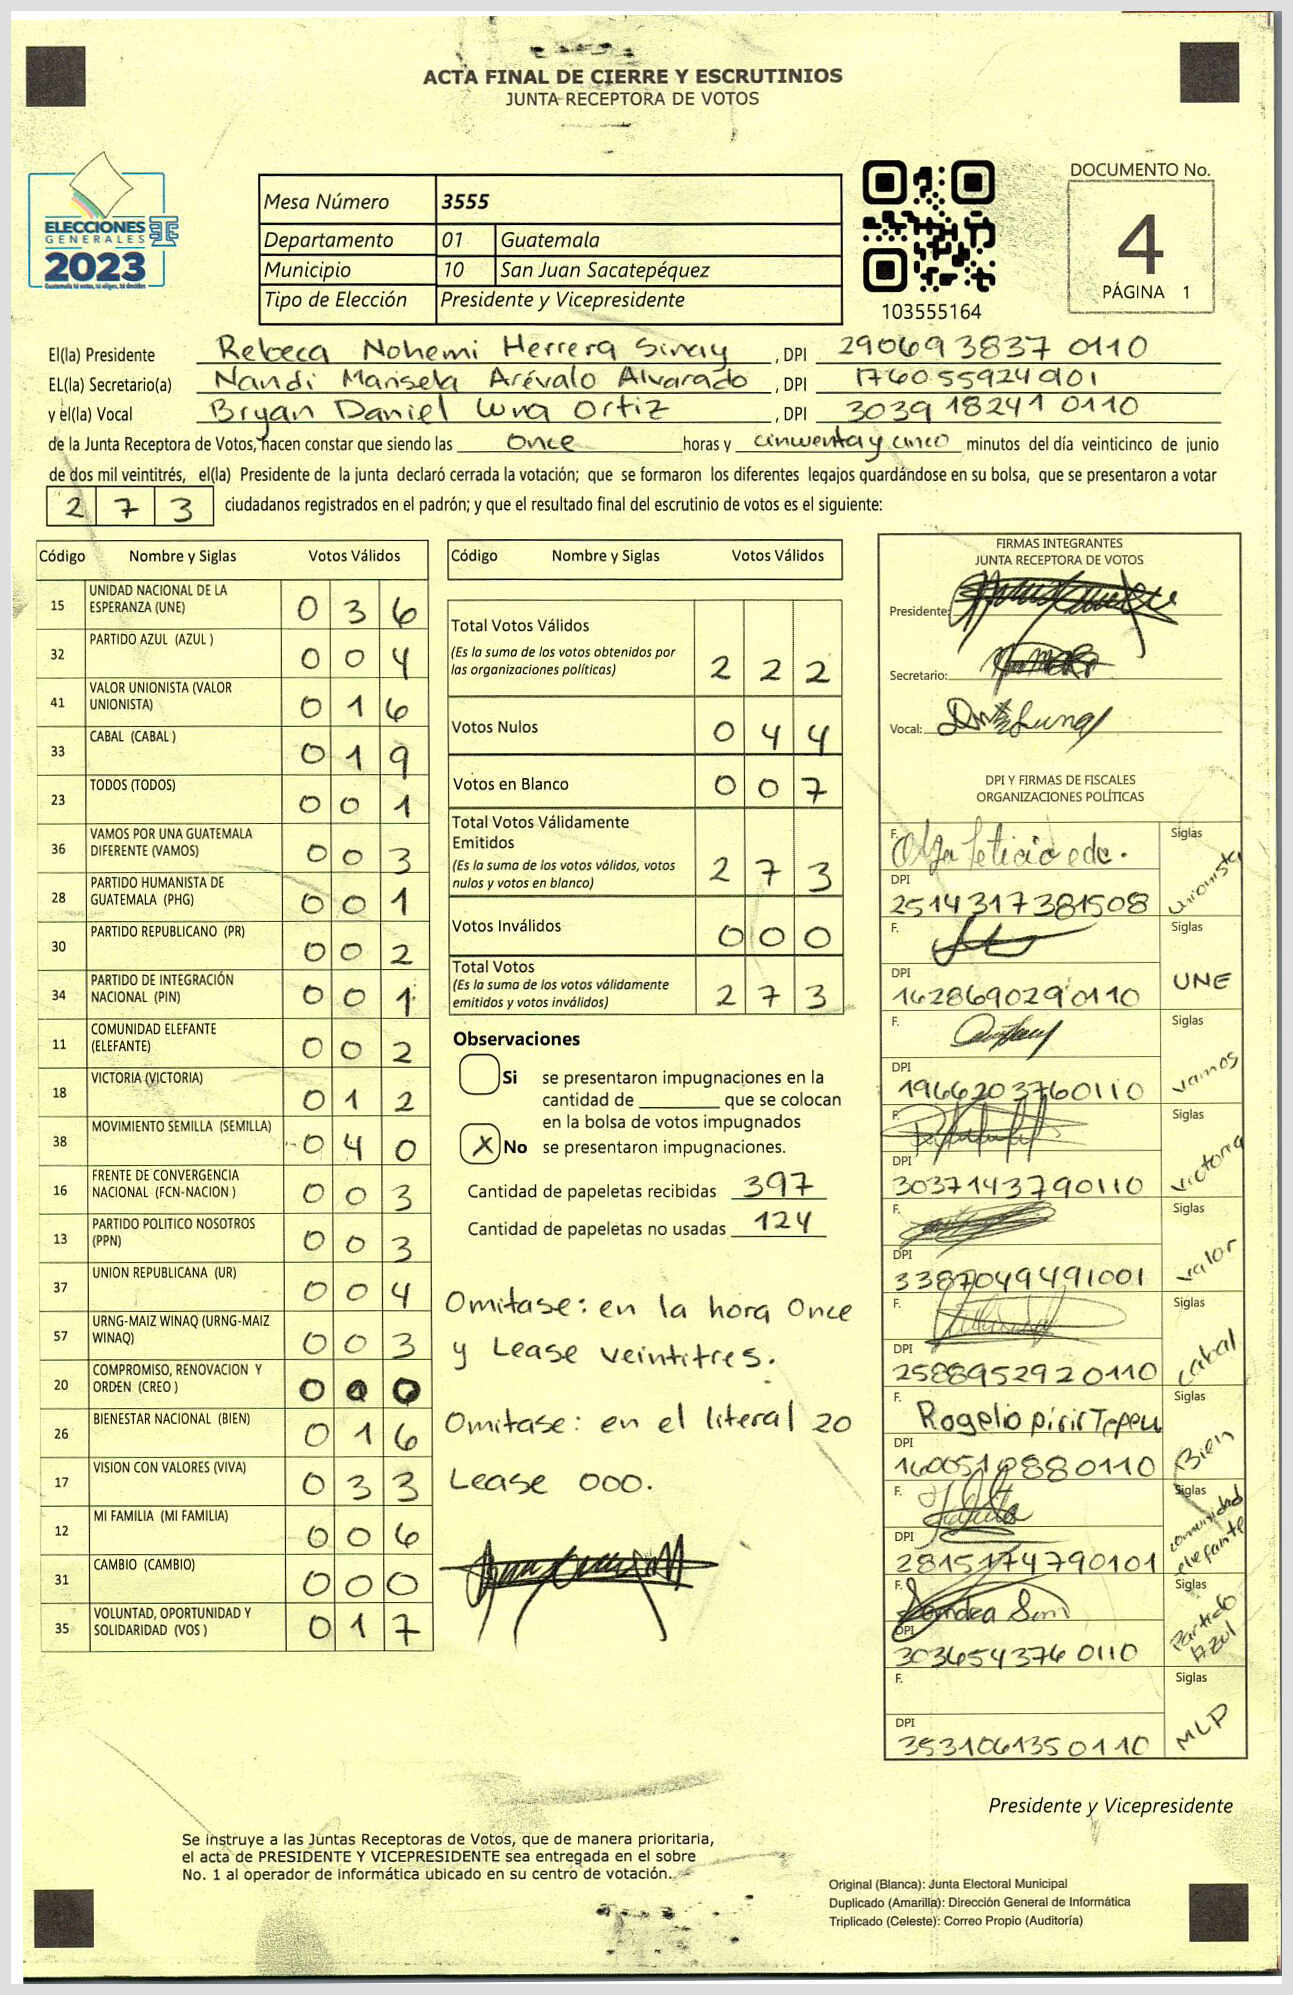 ACTA FINAL DE CIERRE Y ESCRUTINIOS
JUNTA RECEPTORA DE VOTOS
ELECCIONES
GENERALES
2023
Guatemala tú votas, tú eliges, tú decides
Mesa Número 3555
Departamento 01 Guatemala
Municipio 10 San Juan Sacatepéquez
Tipo de Elección Presidente y Vicepresidente
103555164
DOCUMENTO No.
4
PÁGINA 1
El(la) Presidente Rebeca Nohemi Herrera Sinay , DPI 290693837 0110
EL(la) Secretario(a) Nandi Marisela Arévalo Alvarado , DPI 1760559240901
y el(la) Vocal Bryan Daniel Luna Ortiz , DPI 3039 18241 0110
de la Junta Receptora de Votos, hacen constar que siendo las once horas y cinwenta y cinco minutos del día veinticinco de junio
de dos mil veintitrés, el(la) Presidente de la junta declaró cerrada la votación; que se formaron los diferentes legajos guardándose en su bolsa, que se presentaron a votar
273 ciudadanos registrados en el padrón; y que el resultado final del escrutinio de votos es el siguiente:
Código Nombre y Siglas Votos Válidos
15 UNIDAD NACIONAL DE LA ESPERANZA (UNE) 036
32 PARTIDO AZUL (AZUL ) 004
41 VALOR UNIONISTA (VALOR UNIONISTA) 016
33 CABAL (CABAL ) 019
23 TODOS (TODOS) 001
36 VAMOS POR UNA GUATEMALA DIFERENTE (VAMOS) 003
28 PARTIDO HUMANISTA DE GUATEMALA (PHG) 001
30 PARTIDO REPUBLICANO (PR) 002
34 PARTIDO DE INTEGRACIÓN NACIONAL (PIN) 001
11 COMUNIDAD ELEFANTE (ELEFANTE) 002
18 VICTORIA (VICTORIA) 012
38 MOVIMIENTO SEMILLA (SEMILLA) 040
16 FRENTE DE CONVERGENCIA NACIONAL (FCN-NACION ) 003
13 PARTIDO POLITICO NOSOTROS (PPN) 003
37 UNION REPUBLICANA (UR) 004
57 URNG-MAIZ WINAQ (URNG-MAIZ WINAQ) 003
20 COMPROMISO, RENOVACION Y ORDEN (CREO ) 000
26 BIENESTAR NACIONAL (BIEN) 016
17 VISION CON VALORES (VIVA) 033
12 MI FAMILIA (MI FAMILIA) 006
31 CAMBIO (CAMBIO) 000
35 VOLUNTAD, OPORTUNIDAD Y SOLIDARIDAD (VOS ) 017
Código Nombre y Siglas Votos Válidos
Total Votos Válidos
(Es la suma de los votos obtenidos por
las organizaciones políticas) 222
Votos Nulos 044
Votos en Blanco 007
Total Votos Válidamente
Emitidos
(Es la suma de los votos válidos, votos
nulos y votos en blanco) 273
Votos Inválidos 000
Total Votos
(Es la suma de los votos válidamente
emitidos y votos inválidos) 273
Observaciones
Si se presentaron impugnaciones en la
cantidad de ________ que se colocan
en la bolsa de votos impugnados
X No se presentaron impugnaciones.
Cantidad de papeletas recibidas 397
Cantidad de papeletas no usadas 124
Omitase: en la hora Once
y Lease veintitres.
Omitase: en el literal 20
Lease 000.
FIRMAS INTEGRANTES
JUNTA RECEPTORA DE VOTOS
Presidente:
Secretario:
Vocal:
DPI Y FIRMAS DE FISCALES
ORGANIZACIONES POLÍTICAS
F. Olga Leticia Siglas
DPI
2514317381508 Unionista
F. Siglas
DPI
1628690290110 UNE
F. Siglas
DPI
1966203760110 vamos
F. Siglas
DPI
3037143790110 victoria
F. Siglas
DPI
3387049491001 valor
F. Siglas
DPI
2588952920110 cabal
F. Rogelio pirir Tepeu Siglas
DPI
1600510880110 Bien
F. Siglas
DPI
2815174790101 comunidad elefante
F. Siglas
DPI
303654376 0110 Partido Azul
F. Siglas
DPI
3531061350110 MLP
Presidente y Vicepresidente
Se instruye a las Juntas Receptoras de Votos, que de manera prioritaria,
el acta de PRESIDENTE Y VICEPRESIDENTE sea entregada en el sobre
No. 1 al operador de informática ubicado en su centro de votación.
Original (Blanca): Junta Electoral Municipal
Duplicado (Amarilla): Dirección General de Informática
Triplicado (Celeste): Correo Propio (Auditoría)